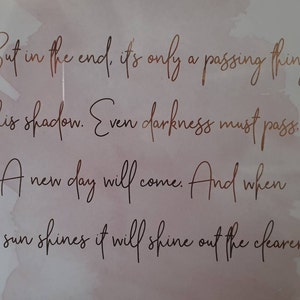 But in the end, it's only a passing thing
this shadow. Even darkness must pass.
A new day will come. And when
sun shines it will shine out the clearer